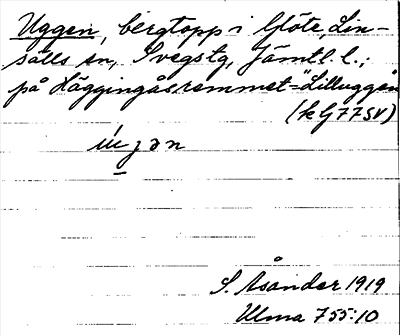 Uggen, bergtopp i Glöte, Lin-
sälls sn, Svegstg, Jämtl. l.;
på Häggingåsrammet = "Lilluggen
(kG77SV)
ùgən
S. Åsander 1919
Ulma 755:10